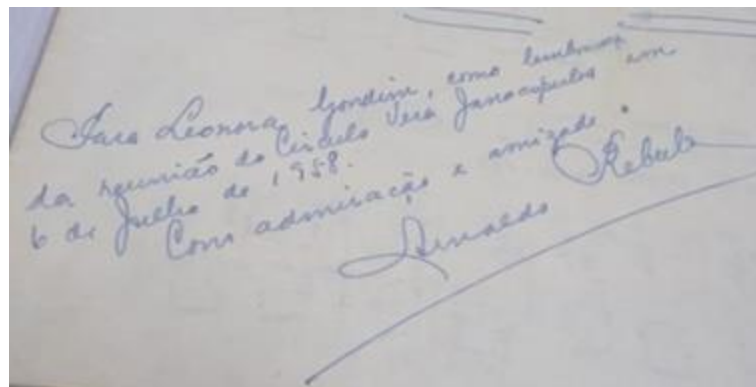 Para Leonora Gondim, como lembrança
da reunião do Círculo Vera Janacopulos em
6 de Julho de 1958.
Com admiração e amizade.
Arnaldo Rebello